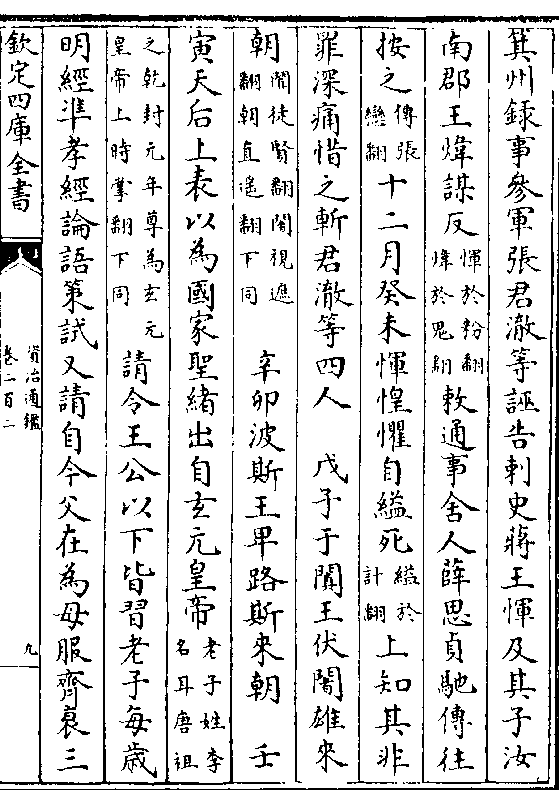 箕州録事參軍張君澈等誣告刺史蔣王惲及其子汝
南郡王煒謀反惲於粉翻煒於鬼翻敕通事舍人薛思貞馳傳往
按之傳張戀翻十二月癸未惲惶懼自縊死縊於計翻上知其非
罪深痛惜之斬君澈等四人　戊子于闐王伏闍雄來
朝闐徒賢翻闍視遮翻朝直遥翻下同　辛卯波斯王卑路斯來朝　壬
寅天后上表以為國家聖緒出自玄元皇帝老子姓李名耳唐祖
之乾封元年尊為玄元皇帝上時掌翻下同請令王公以下皆習老子每歳
明經準孝經論語策試又請自今父在為母服齊衰三
欽定四庫全書
資治通鑑
卷二百二
九